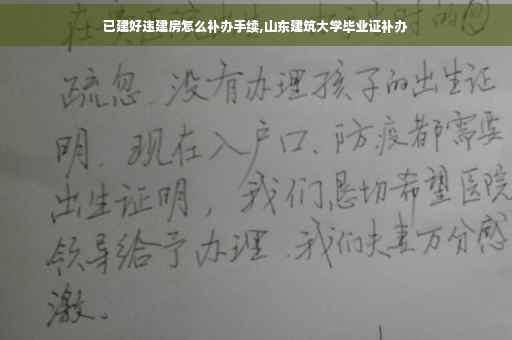 已建好违建房怎么补办手续,山东建筑大学毕业证补办
疏忽、没有办理孩子的出生证
明。现在入户口、防疫都需要
出生证明，我们恳切希望医院
领导给予办理、我们夫妻万分感
激。